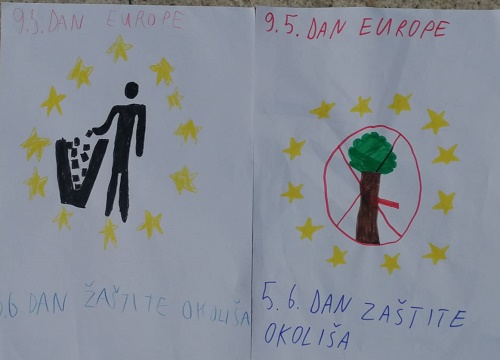 9.5. DAN EUROPE
5.6 DAN ŽAŠTITE OKOLIŠA
9.5. DAN EUROPE
5.6. DAN ZAŠTITE
OKOLIŠA